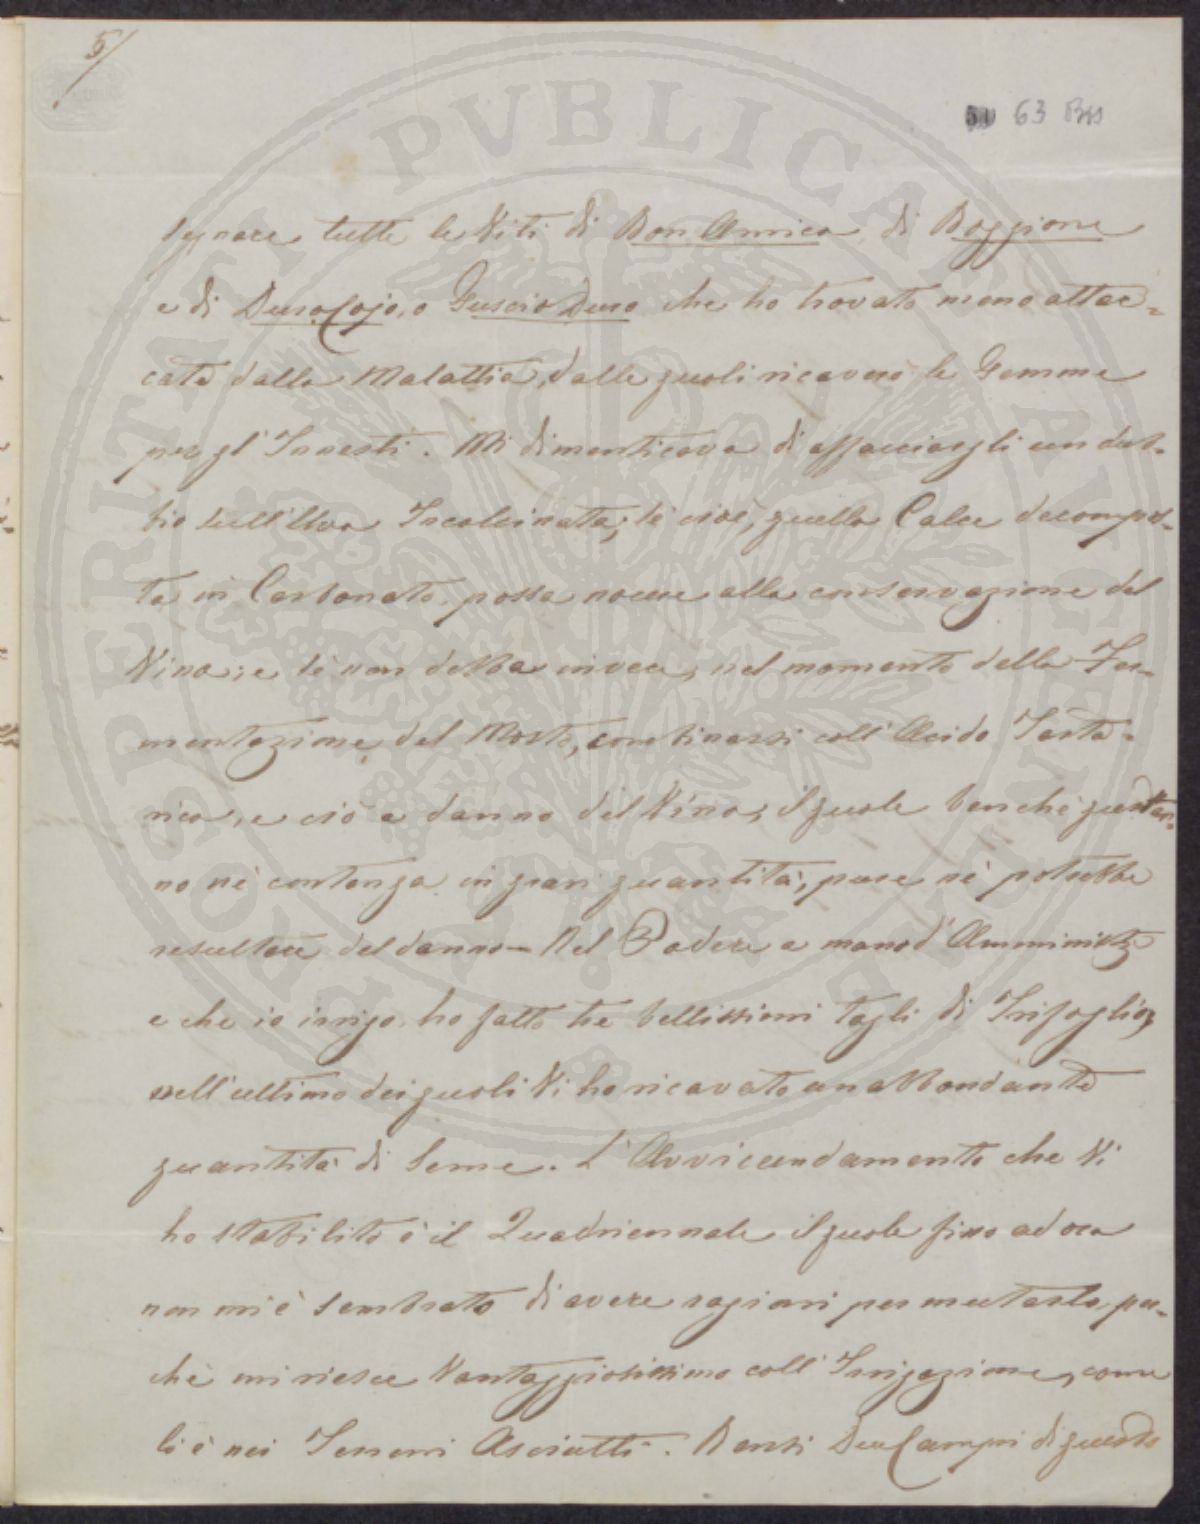 5/
63 Bis
segnare tutte le Viti di Bon Amico, di Boggione
e di Duro Cojo, o Guscio Duro che ho trovato meno attac=
cate dalla Malattia, dalle quali ricaverò le Gemme
per gl' Innesti. Mi dimenticava di affacciargli un dub-
bio sull' Uva Incalcinata; se cioè, quella Calce decompos-
ta in Carbonato, possa nocere alla conservazione del
Vino; e se non debba invece, nel momento della Fer-
mentazione del Mosto, combinarsi coll' Acido Tarta-
rico, e ciò a danno del Vino, il quale benchè quest'an-
no nè contenga in gran quantità, pure nè potrebbe
resultare del danno = Nel Podere a mano d' Amministr.e
e che io irrigo, ho fatto tre bellissimi tagli di Trifoglio,
nell' ultimo dei quali Vi ho ricavato un abbondante
quantità di Seme. L' Avvicendamento che Vi
ho stabilito è il Quadriennale, il quale fino ad ora
non mi è sembrato di avere ragioni per mutarlo, per-
chè mi riesce Vantaggiosissimo coll' Irrigazione, come
lo è nei Terreni Asciutti. Bensì Due Campi di questo
POSPERITATI PVBLICAE AVGENDAE